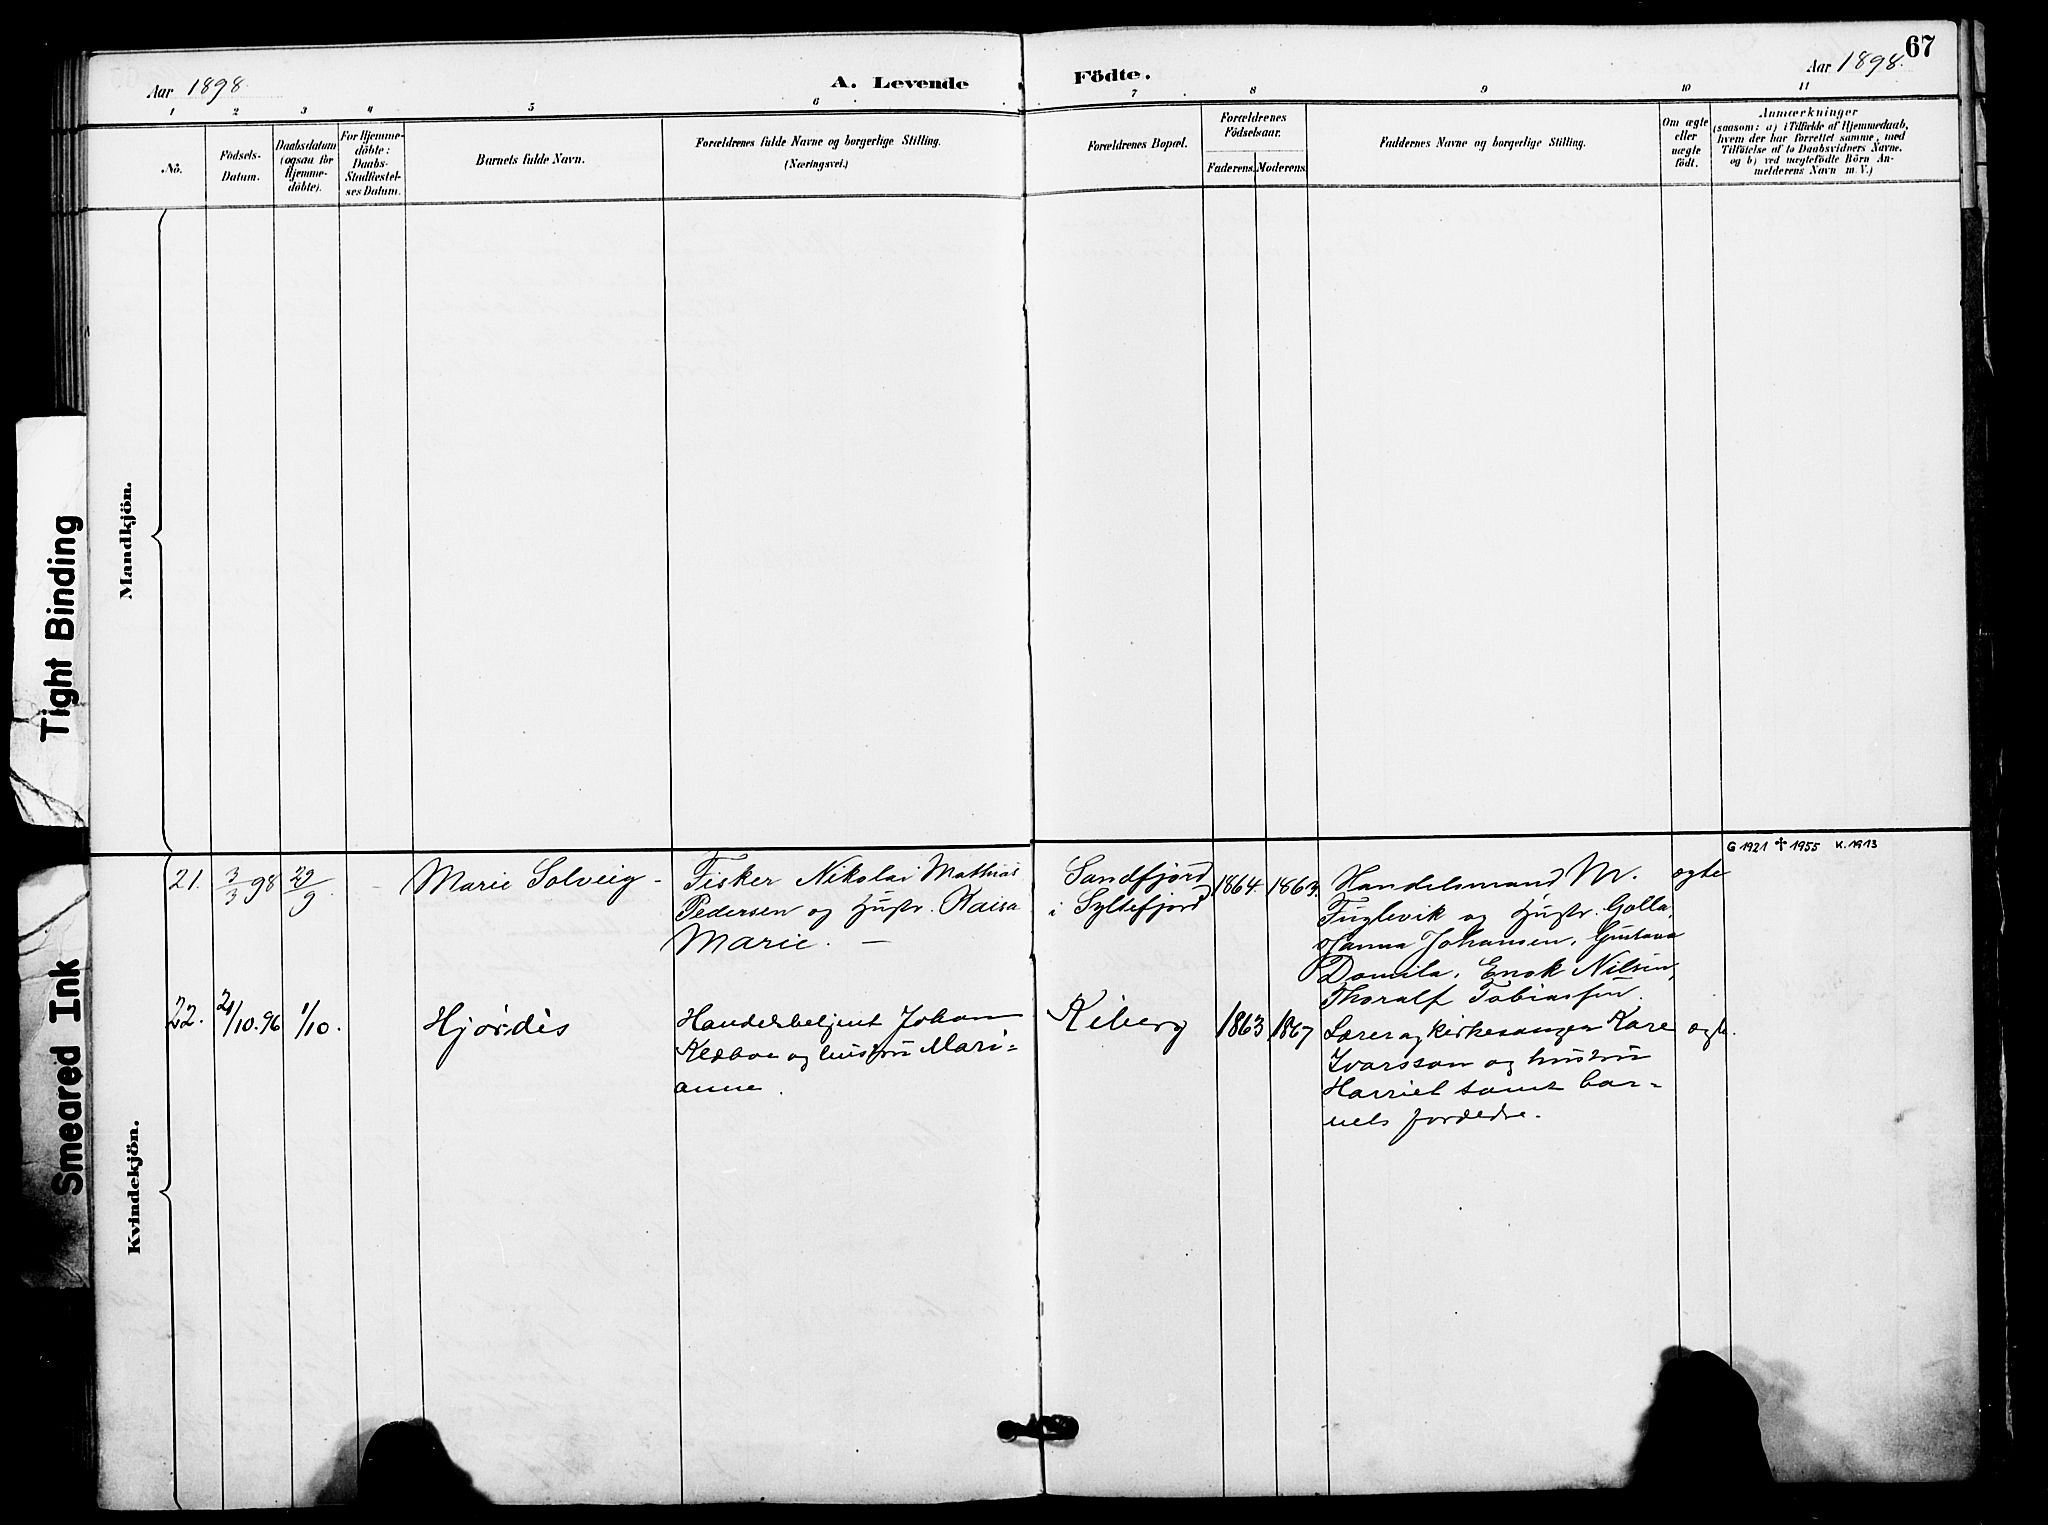 67
Aar 1898.
A. Levende Födte.
Aar 1898.
1 2 3 4 5 6 7 8 9 10 11
No.
Födsels-
Datum.
Daabsdatum
(ogsaa for
Hjemme-
döbte).
For Hjemme-
döbte:
Daabs-
Stadfæstel-
ses Datum.
Barnets fulde Navn.
Forældrenes fulde Navne og borgerlige Stilling.
(Næringsvei.)
Forældrenes Bopæl.
Forældrenes
Födselsaar.
Faderens. Moderens.
Faddernes Navne og borgerlige Stilling.
Om ægte
eller
uægte
födt.
Anmærkninger
(saasom: a) i Tilfælde af Hjemmedaab,
hvem der har forrettet samme, med
Tilföielse af to Daabsvidners Navne,
og b) ved uægtefödte Börn An-
melderens Navn m. V.)
Mandkjön.
Tight Binding
Smeared Ink
Kvindekjön.
G 1921 ✝ 1955 K. 1913
21.
3/3 98
29/9.
Marie Solveig -
Fisker Nikolai Mathias
Pedersen og Hustr. Kaisa
Marie. -
Sandfjord
i Syltefjord
1864.
1863.
Handelsmand M.
Fuglevik og Hustr. Golla,
Hanna Johansen, Gustava
Daniela, Enok Nilsen,
Thoralf Tobiassen.
ægte
22.
21/10.96
1/10.
Hjördis
Handelsbetjent Johan
Klæboe og hustru Mari=
anne.
Kiberg
1863
1867
Lærer og kirkesanger Kare
Ivarsson og hustru
Harriet samt bar=
nets forældre.
ægte.